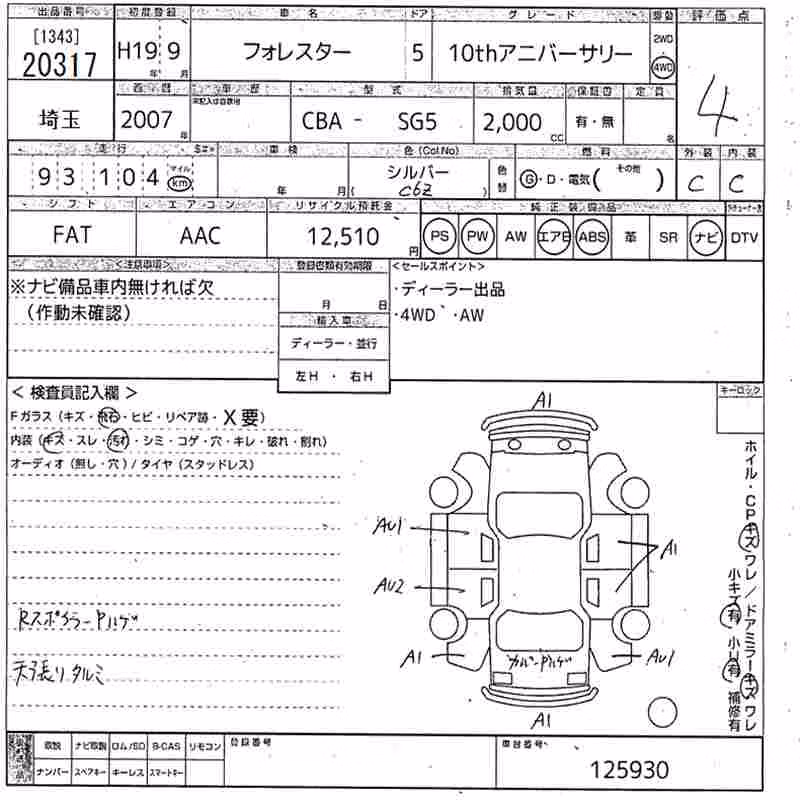 出品番号 初度登録 車名 ドア グレード 駆動 評価点
[1343]
20317 H19 9 フォレスター 5 10thアニバーサリー 2WD ・ 4WD 4
年 月
西暦 車歴 型式 排気量 保証書 定員
未記入は自家用
埼玉 2007 年 CBA - SG5 2,000 CC 有・無 名
走行 車検 色(Col No) 燃料 外装 内装
93,104 マイル km 年 月 シルバー ( C6Z ) 色替 G・D・電気( その他 ) C C
シフト エアコン リサイクル預託金 純正装備品
FAT AAC 12,510 円 PS PW AW エアB ABS 革 SR ナビ DTV
<注意事項> 登録書類有効期限 <セールスポイント>
※ナビ備品車内無ければ欠 ・ディーラー出品
(作動未確認) 月 日 ・4WD ・AW
輸入車
ディーラー・並行
左H ・ 右H
< 検査員記入欄 > キーロック
Fガラス(キズ・飛石・ヒビ・リペア跡・X要)
内装(キズ・スレ・汚れ・シミ・コゲ・穴・キレ・破れ・割れ)
オーディオ(無し・穴)/タイヤ(スタッドレス)
A1
AU1
A1
AU2
Rスポイラー Pハゲ
A1
カバーPハゲ
AU1
天張りタルミ
A1
ホイル・CPキズ ワレ/ドアミラーキズ ワレ
小キズ有 小U有 補修有
取説 ナビ取説 ロム/SD B-CAS リモコン 登録番号 車台番号
ナンバー スペアキー キーレス スマートキー 125930